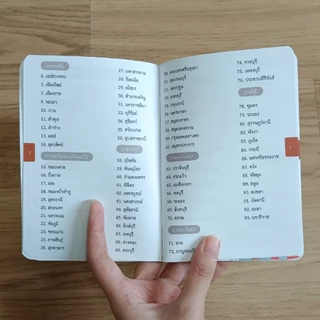 ภาคเหนือ
4. แม่ฮ่องสอน
5. เชียงใหม่
7. เชียงราย
9. พะเยา
10. น่าน
11. ลำพูน
12. ลำปาง
13. แพร่
14. อุตรดิตถ์
ภาคตะวันออกเฉียงเหนือ
15. หนองคาย
16. บึงกาฬ
17. เลย
18. หนองบัวลำภู
19. อุดรธานี
20. สกลนคร
21. นครพนม
22. ชัยภูมิ
23. ขอนแก่น
25. กาฬสินธุ์
26. มุกดาหาร
27. มหาสารคาม
28. ร้อยเอ็ด
29. ยโสธร
30. อำนาจเจริญ
31. นครราชสีมา
32. บุรีรัมย์
33. สุรินทร์
34. ศรีสะเกษ
36. อุบลราชธานี
ภาคกลาง
38. สุโขทัย
39. พิษณุโลก
40. กำแพงเพชร
41. พิจิตร
42. เพชรบูรณ์
43. นครสวรรค์
44. อุทัยธานี
45. ชัยนาท
46. สิงห์บุรี
47. ลพบุรี
48. อ่างทอง
49. สระบุรี
50. พระนครศรีอยุธยา
51. สุพรรณบุรี
52. นครปฐม
53. นนทบุรี
55. ปทุมธานี
56. นครนายก
57. สมุทรสาคร
58. สมุทรสงคราม
59. กรุงเทพมหานคร
60. สมุทรปราการ
ภาคตะวันออก
63. ปราจีนบุรี
64. สระแก้ว
65. ฉะเชิงเทรา
66. ชลบุรี
68. ระยอง
69. จันทบุรี
70. ตราด
ภาคตะวันตก
71. ตาก
72. กาญจนบุรี
74. ราชบุรี
75. เพชรบุรี
76. ประจวบคีรีขันธ์
ภาคใต้
78. ชุมพร
79. ระนอง
80. สุราษฎร์ธานี
82. พังงา
83. ภูเก็ต
85. กระบี่
86. นครศรีธรรมราช
87. ตรัง
88. พัทลุง
89. สตูล
90. สงขลา
91. ปัตตานี
92. ยะลา
93. นราธิวาส